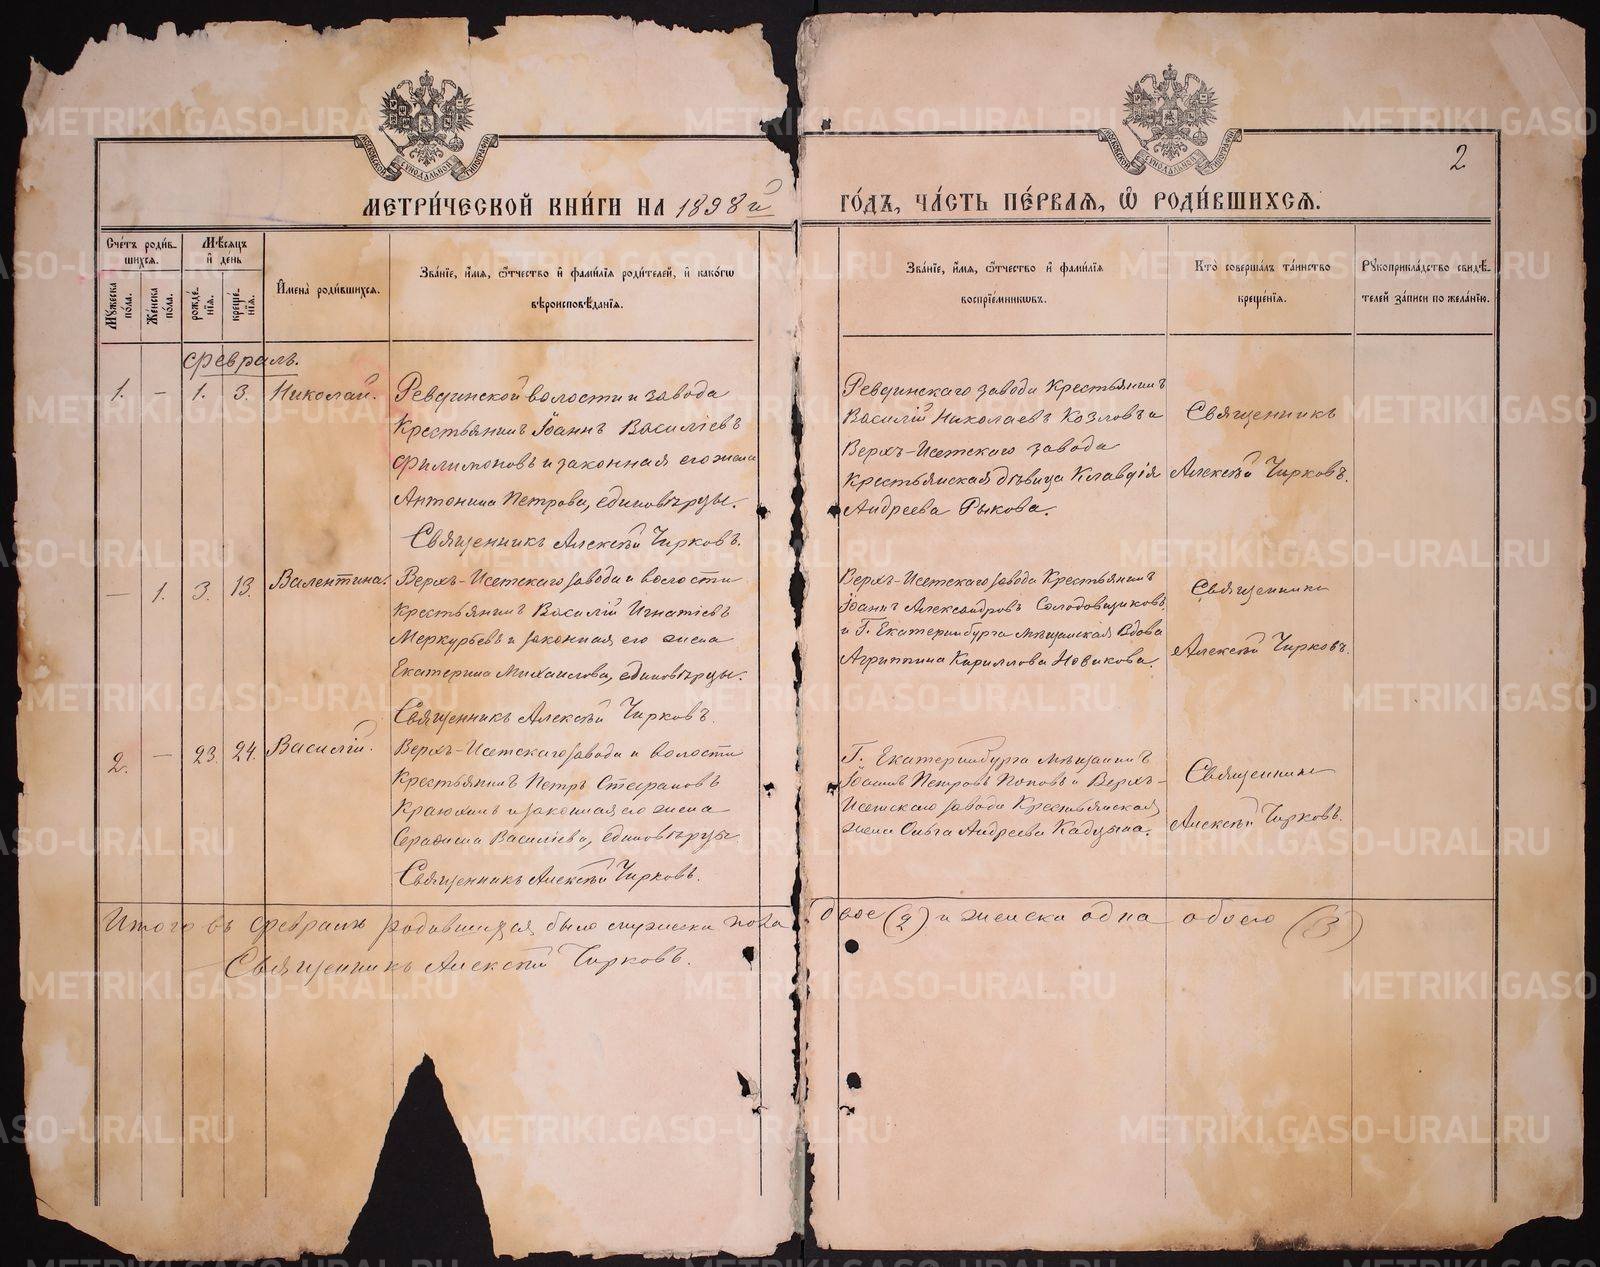 2
МЕТРИ́ЧЕСКОЙ КНИ́ГИ НА 1898й
ГО́ДЪ, ЧА́СТЬ ПЕ́РВАЯ, Ѿ РОДИ́ВШИХСЯ.
Сче́тъ роди́в-
шихся.
Мѣ́сяцъ
и҆ де́нь
Мꙋ́жеска по́ла.
Же́нска по́ла.
рожде́-
нїя.
креще́-
нїя.
И҆мена̀ роди́вшихся.
Зва́нїе, и҆́мя, ѻ҆́тчество и҆ фами́лїя роди́телей, и҆ како́гѡ
вѣроисповѣ́данїя.
Зва́нїе, и҆́мя, ѻ҆́тчество и҆ фами́лїя
воспрїе́мникѡвъ.
Кто̀ соверша́лъ та́инство
креще́нїя.
Рꙋкоприкла́дство свидѣ́-
телей за́писи по жела́нїю.
Февраль.
1. – 1. 3. Николай.
Ревдинской волости и завода
Крестьянинъ Іоаннъ Василіевъ
Филимоновъ и законная его жена
Антонина Петрова, единовѣрцы.
Священникъ Алексѣй Чирковъ.
Ревдинскаго завода Крестьянинъ
Василій Николаевъ Козловъ и
Верхъ-Исетскаго завода
Крестьянская дѣвица Клавдія
Андреева Рыкова.
Священникъ
Алексѣй Чирковъ.
– 1. 3. 13. Валентина.
Верхъ-Исетскаго завода и волости
Крестьянинъ Василій Игнатіевъ
Меркурьевъ и законная его жена
Екатерина Михаилова, единовѣрцы.
Священникъ Алексѣй Чирковъ.
Верхъ-Исетскаго завода Крестьянинъ
Іоаннъ Александровъ Солодовниковъ
и Г. Екатеринбурга мѣщанская вдова
Агриппина Кириллова Новикова.
Священникъ
Алексѣй Чирковъ.
2. – 23. 24. Василій.
Верхъ-Исетскаго завода и волости
Крестьянинъ Петръ Стефановъ
Краюхинъ и законная его жена
Серафима Василіева, единовѣрцы.
Священникъ Алексѣй Чирковъ.
Г. Екатеринбурга мѣщанинъ
Іоаннъ Петровъ Поповъ и Верхъ-
Исетскаго завода Крестьянская
жена Ольга Андреева Кадцына.
Священникъ
Алексѣй Чирковъ.
Итого въ февралѣ родившихся было мужеска пола двое (2) и женска одна обоего (3)
Священникъ Алексѣй Чирковъ.